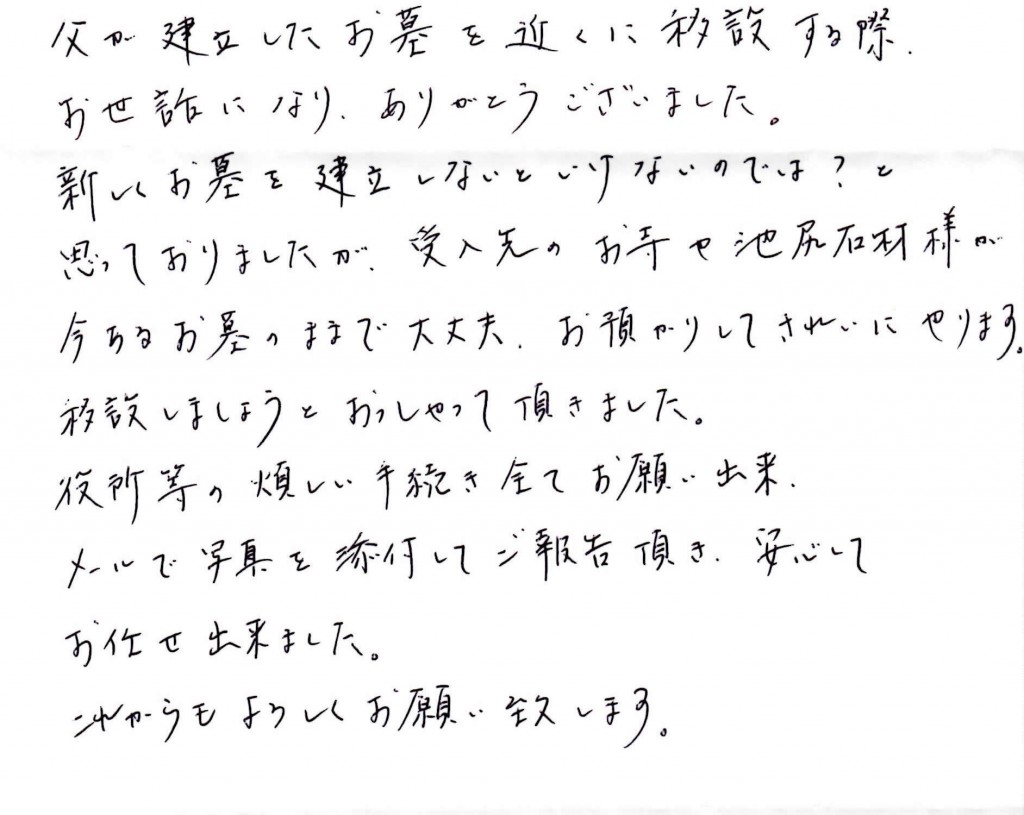 父が建立したお墓を近くに移設する際、
お世話になり、ありがとうございました。
新しくお墓を建立しないといけないのでは?と
思っておりましたが、受入先のお寺や池尻石材様が
今あるお墓のままで大丈夫、お預かりしてきれいにやります。
移設しましょうとおっしゃって頂きました。
役所等の煩しい手続き全てお願い出来、
メールで写真を添付してご報告頂き、安心して
お任せ出来ました。
これからもよろしくお願い致します。